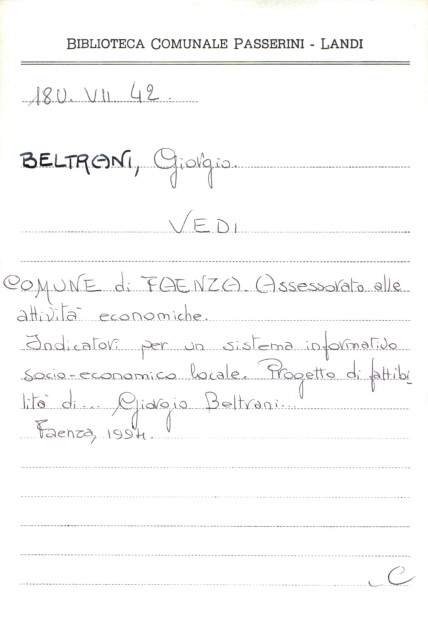 BIBLIOTECA COMUNALE PASSERINI - LANDI
180. VII 42.
BELTRANI, Giorgio.
VEDI
COMUNE di FAENZA. Assessorato alle
attività economiche.
Indicatori per un sistema informativo
socio-economico locale. Progetto di fattibi
lità di... Giorgio Beltrani...
Faenza, 1994.
C